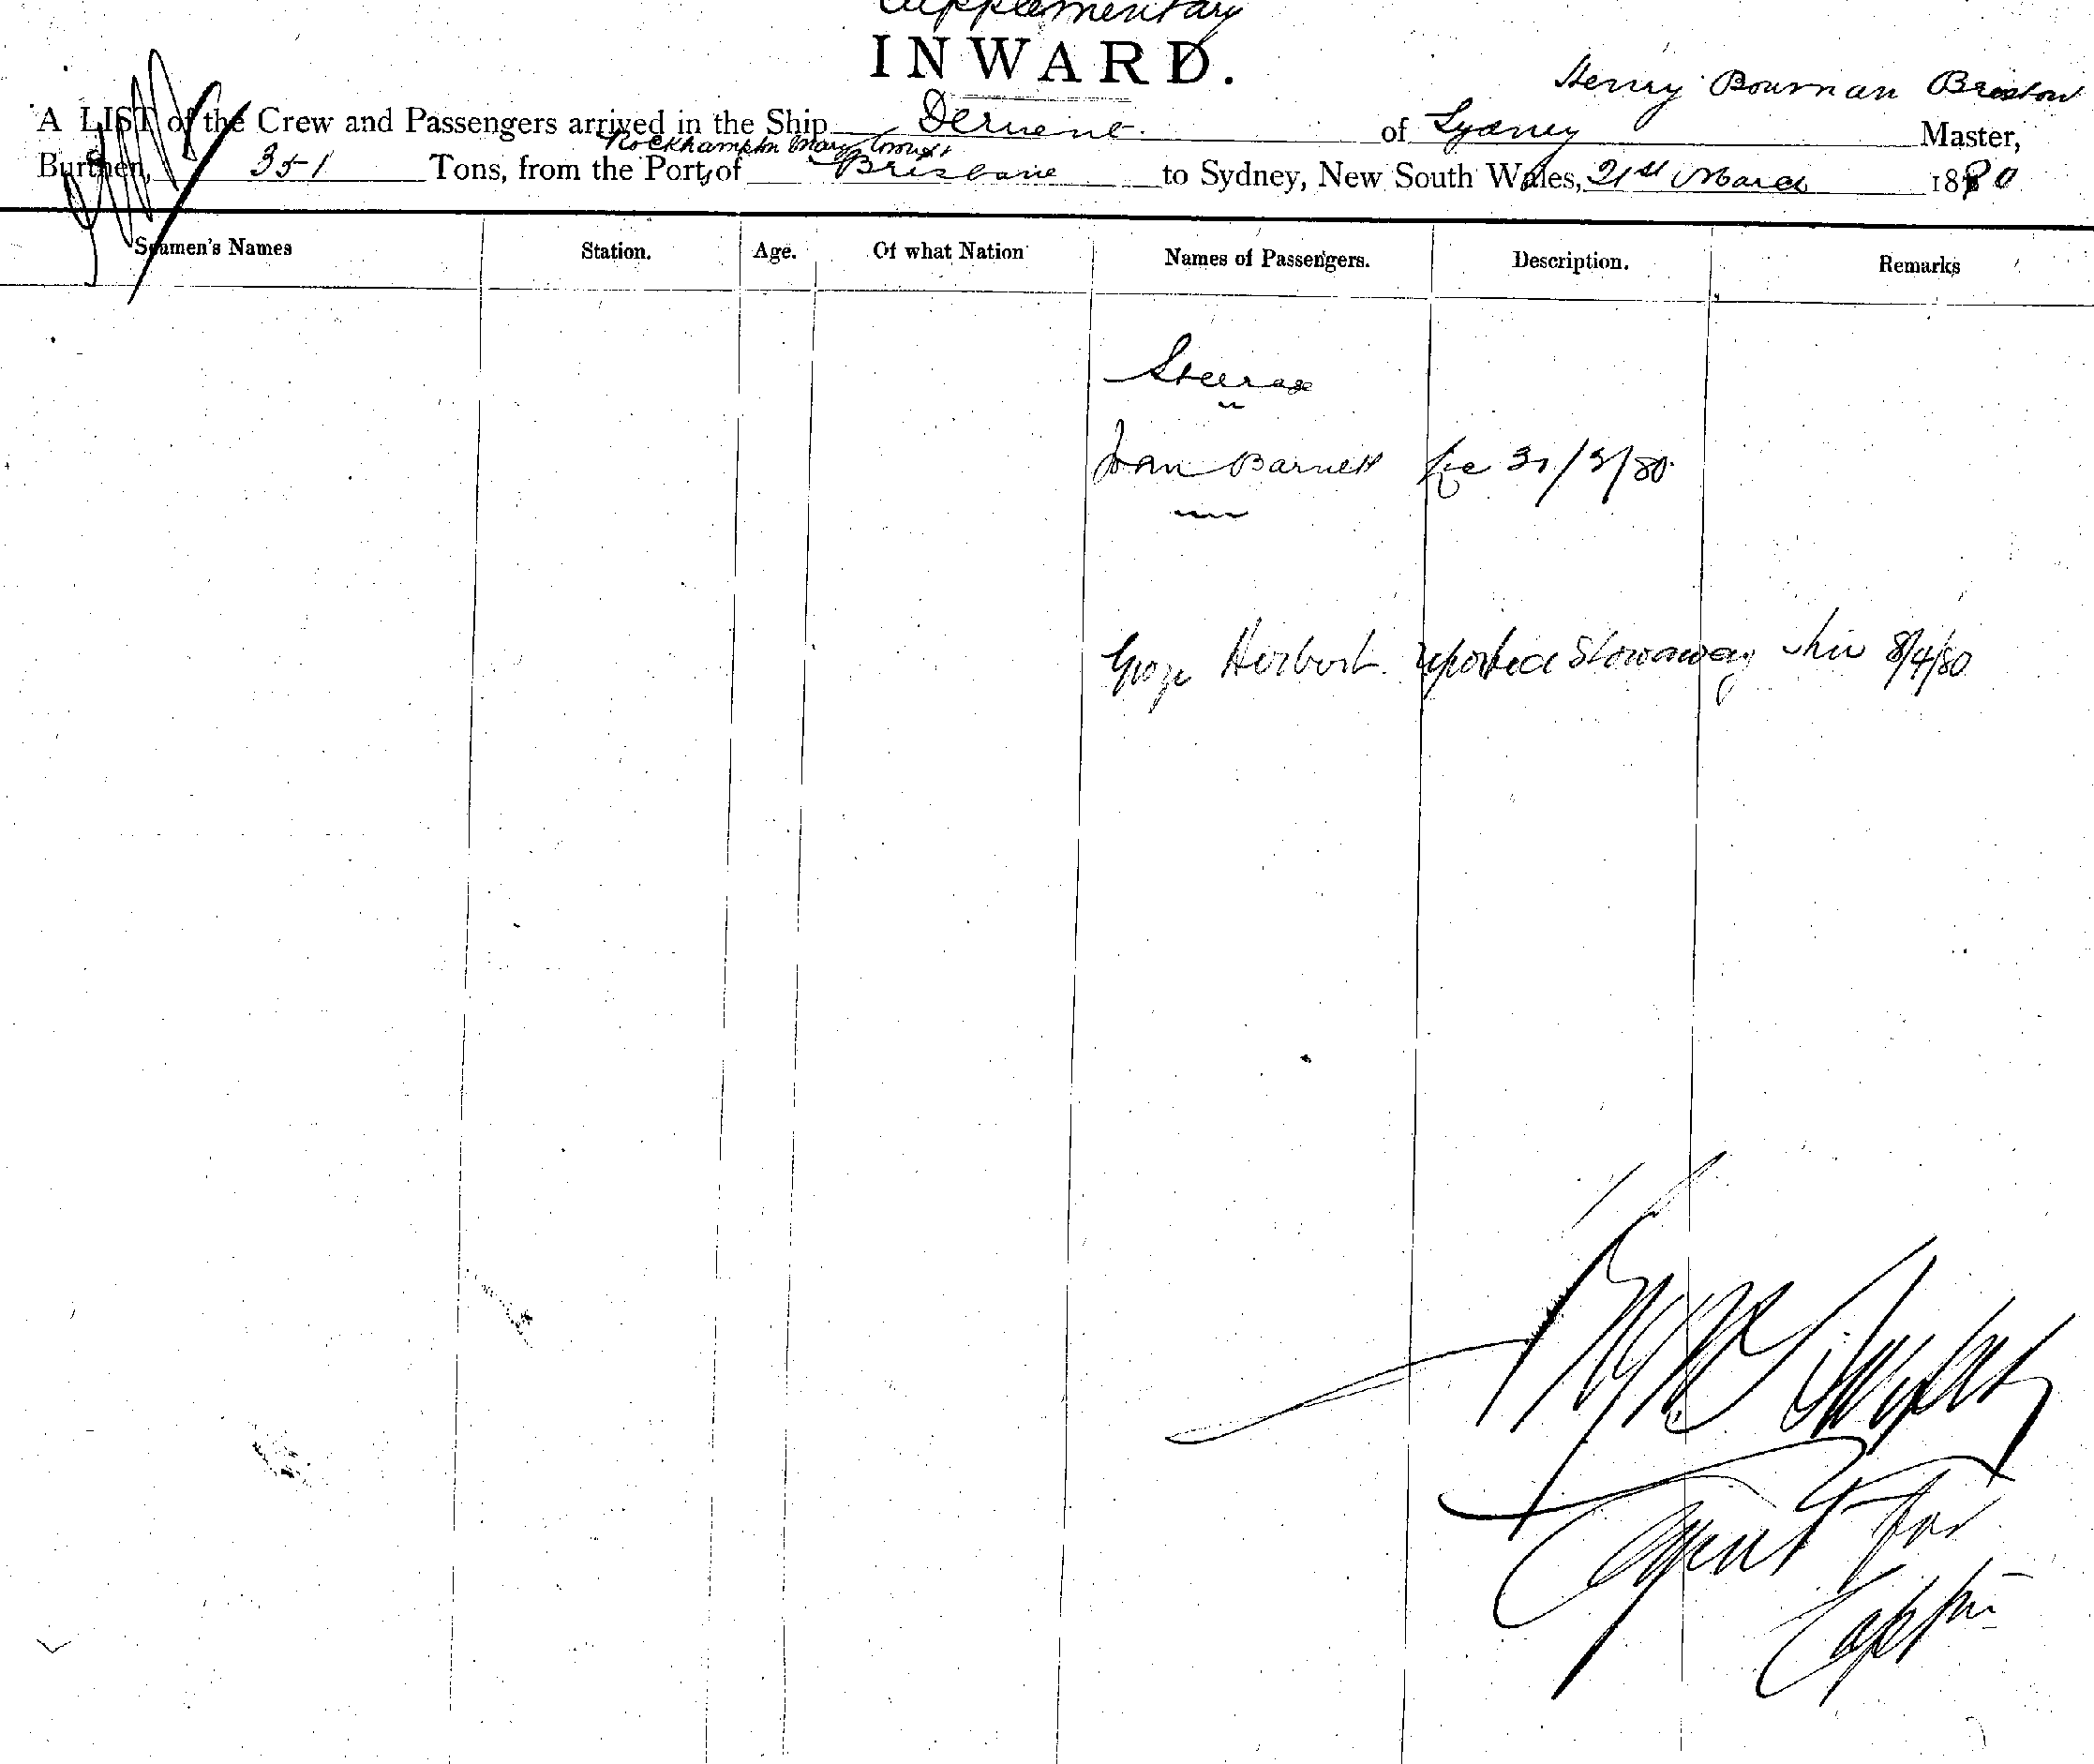 Supplementary
INWARD.
Henry Bowman Bristow
A LIST of the Crew and Passengers arrived in the Ship Derwent of Sydney Master,
Rockhampton Maryboro' &
Burthen, 351 Tons, from the Ports of Brisbane to Sydney, New South Wales, 21st March 1880
Seamen's Names Station. Age. Of what Nation Names of Passengers. Description. Remarks
Steerage
John Barnett 31/3/80
George Herbert reported Stowaway 8/4/80
Agent for
Captn